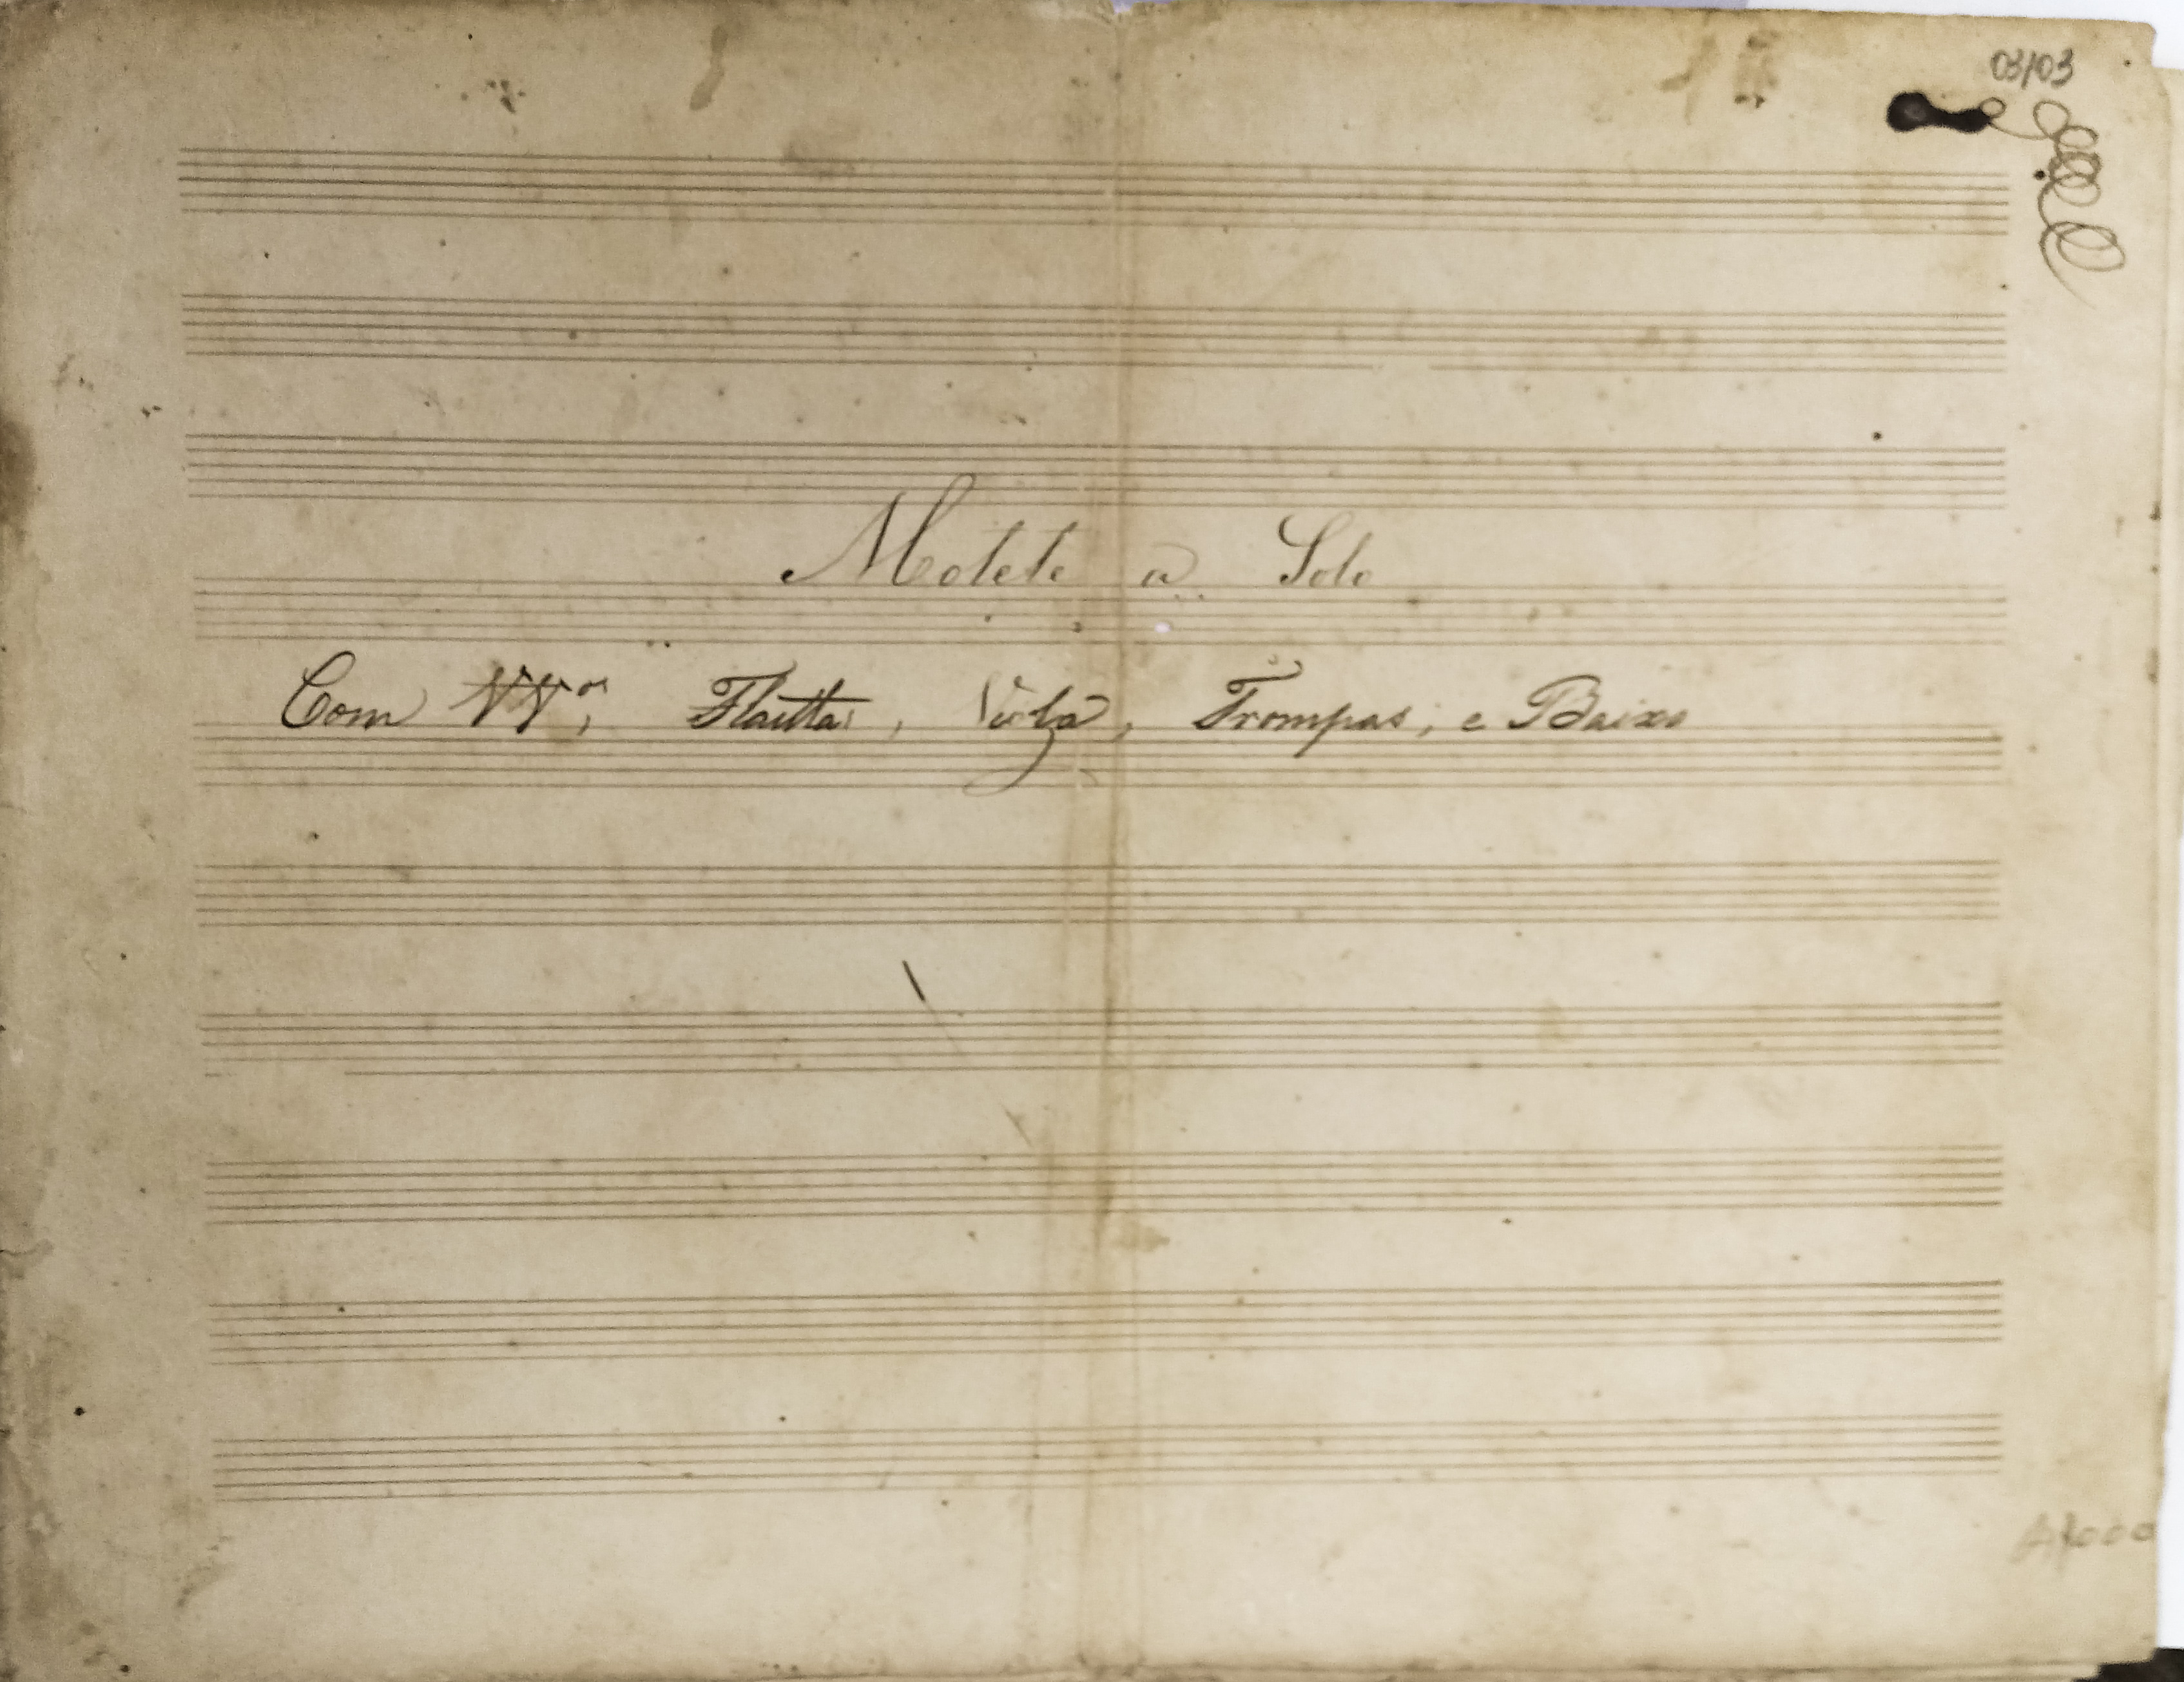 03/03
Motete a Solo
Com VV.os, Flautta, Viola, Trompas, e Baixo